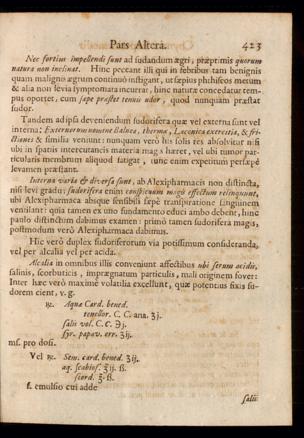 Pars Altera. 423
Nec fortius impellendi sunt ad sudandum ægri, præprimis quorum
natura non inclinat. Hinc peccant illi qui in febribus tam benignis
quam malignis ægrum continuò instigant, ut sæpius phthiseos metum
& alia non levia symptomata incurrat, hinc naturæ concedatur tem-
pus oportet, cum sæpe præstet tenuis udor, quod nunquam præstat
sudor.
Tandem adipsa deveniendum sudorifera quæ vel externa sunt vel
interna; Externorum nomine Balnea, therma, Laconica exercitia, & fri-
ctiones & similia veniunt: nunquam verò his solis res absolvitur nisi
ubi in spatiis intercutaneis materia magis hæret, vel ubi tumor par-
ticularis membrum aliquod fatigat, tunc enim expetitum persæpè
levamen præstant.
Interna varia & diversa sunt, ab Alexipharmacis non distincta,
nisi levi gradu; sudorifera enim conspicuum magis effectum relinquunt,
ubi Alexipharmaca absque sensibili sæpe transpiratione sanguinem
ventilant: quia tamen ex uno fundamento educi ambo debent, hinc
paulo distinctum dabimus examen: primò tamen sudorifera magis,
postmodum verò Alexipharmaca dabimus.
Hic verò duplex sudoriferorum via potissimum consideranda,
vel per alcalia vel per acida.
Alcalia in omnibus illis conveniunt affectibus ubi serum acidis,
salinis, scorbuticis, imprægnatum particulis, mali originem fovet:
Inter hæc verò maximè volatilia excellunt, quæ potentius fixis su-
dorem cient, v. g.
℞. Aquæ Card. bened.
tenellor. C. C. ana. ʒj.
salis vol. C. C. ℈j.
syr. papav. err. ʒij.
ms. pro dosi.
Vel ℞. Sem. card. bened. ʒij.
aq. scabios. ℥ij. ß.
scord. ℥. ß.
f. emulsio cui adde
salis